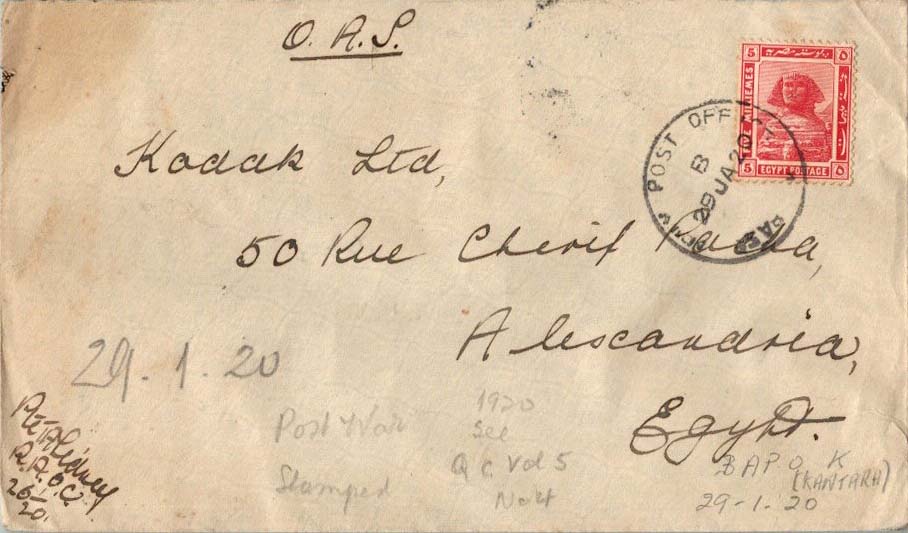 O. A. S.
5 ٥
FIVE MILLIEMES
5 5
EGYPT POSTAGE
POST OFFICE
B
29 JA 20
Kodak Ltd,
50 Rue Cherif Pacha,
Alexandria,
Egypt.
29.1.20
Post War
Stamped
1920
See
Q C Vol 5
No 4
BAPO K
(KANTARA)
29-1-20
Pte
R.A.O.C.
26/1
20.